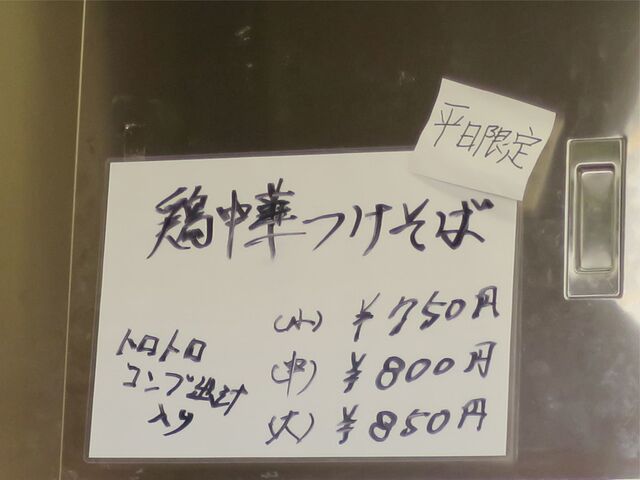 平日限定
鶏中華つけそば
(小) ¥750円
(中) ¥800円
(大) ¥850円
トロトロ
コンブ出汁
入り